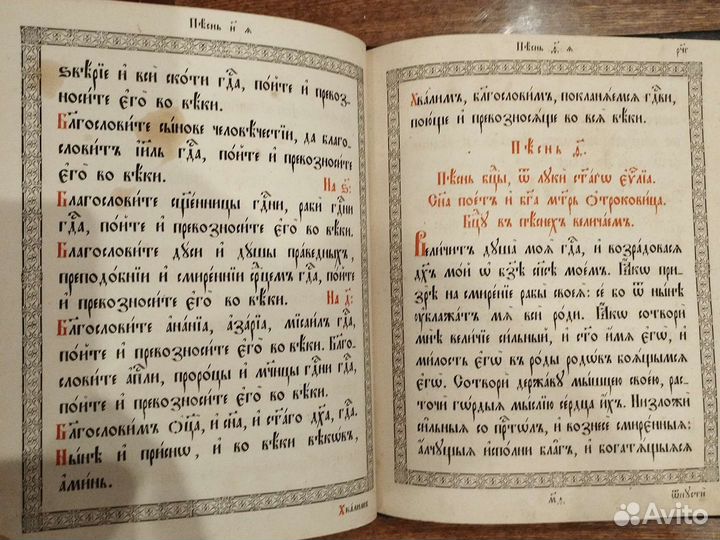 Пѣснь и҃ и҃ я
ѕвѣ́рїе и҆ всѝ ско́ти гдⷭ҇а, по́йте и҆ превоз-
носи́те є҆го̀ во вѣ́ки.
Благослови́те сы́нове человѣ́честїи, да благо-
слови́тъ і҆и҃ль гдⷭ҇а, по́йте и҆ превозноси́те
є҆го̀ во вѣ́ки.
На ѕ҃:
Благослови́те сщ҃е́нницы гдⷭ҇ни, рабѝ гдⷭ҇ни
гдⷭ҇а, по́йте и҆ превозноси́те є҆го̀ во вѣ́ки.
Благослови́те ду́си и҆ ду́шы пра́ведныхъ,
преподо́бнїи и҆ смире́ннїи срⷣцемъ гдⷭ҇а, по́йте
и҆ превозноси́те є҆го̀ во вѣ́ки.
На д҃:
Благослови́те а҆на́нїа, а҆за́рїа, мїсаи́лъ гдⷭ҇а,
по́йте и҆ превозноси́те є҆го̀ во вѣ́ки. Бл҃го-
слови́те а҆пⷭ҇ли, проро́цы и҆ мч҃ницы гдⷭ҇ни гдⷭ҇а,
по́йте и҆ превозноси́те є҆го̀ во вѣ́ки.
Бл҃гослови́мъ ѻ҆ц҃а̀, и҆ сн҃а, и҆ ст҃а́го дх҃а, гдⷭ҇а.
Ны́нѣ и҆ при́снѡ, и҆ во вѣ́ки вѣкѡ́въ,
а҆ми́нь.
Хвалимъ
Пѣснь ѳ҃ я
рч҃г
Хва́лимъ, бл҃гослови́мъ, покланѧ́емсѧ гдⷭ҇ви,
пою́ще и҆ превозносѧ́ще во всѧ̑ вѣ́ки.
Пѣ́снь ѳ҃.
Пѣ́снь бц҃ы, ѿ лꙋкѝ ст҃а́гѡ є҆ѵⷢ҇лїа.
Сн҃а пое́тъ и҆ бг҃а мт҃рь ѻ҆трокови́ца.
Бц҃ꙋ въ пѣ́снехъ велича́емъ.
Вели́читъ дꙋша̀ моѧ̀ гдⷭ҇а, и҆ возра́довасѧ
дх҃ъ мо́й ѡ҆ бз҃ѣ сп҃сѣ мое́мъ. Ꙗ҆́кѡ при-
зрѣ̀ на смире́нїе рабы̀ своеѧ̀: се́ бо ѿ ны́нѣ
ᲂу҆блажа́тъ мѧ̀ всѝ ро́ди. Ꙗ҆́кѡ сотворѝ
мнѣ̀ вели́чїе си́льный, и҆ ст҃о и҆́мѧ є҆гѡ̀, и҆
ми́лость є҆гѡ̀ въ ро́ды родѡ́въ боѧ́щымсѧ
є҆гѡ̀. Сотворѝ держа́вꙋ мы́шцею свое́ю, рас-
точѝ гѡ́рдыѧ мы́слїю се́рдца и҆́хъ. Низложѝ
си́льныѧ со прⷭ҇то́лъ, и҆ вознесѐ смире́нныѧ:
а҆́лчꙋщыѧ и҆спо́лни бла́гъ, и҆ богатѧ́щыѧсѧ
м҃д.
ѿпꙋсти
Avito